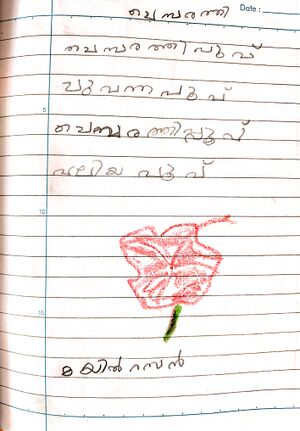 Date :
ചെമ്പരത്തി
ചെമ്പരത്തിപൂവ്
ചുവന്നപൂവ്
5
ചെമ്പരത്തിപ്പൂവ്
വലിയ പൂവ്
10
15